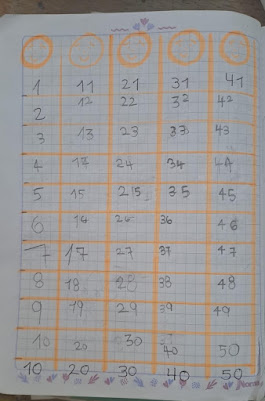 1 11 21 31 41
2 12 22 32 42
3 13 23 33 43
4 14 24 34 44
5 15 25 35 45
6 16 26 36 46
7 17 27 37 47
8 18 28 38 48
9 19 29 39 49
10 20 30 40 50
10 20 30 40 50